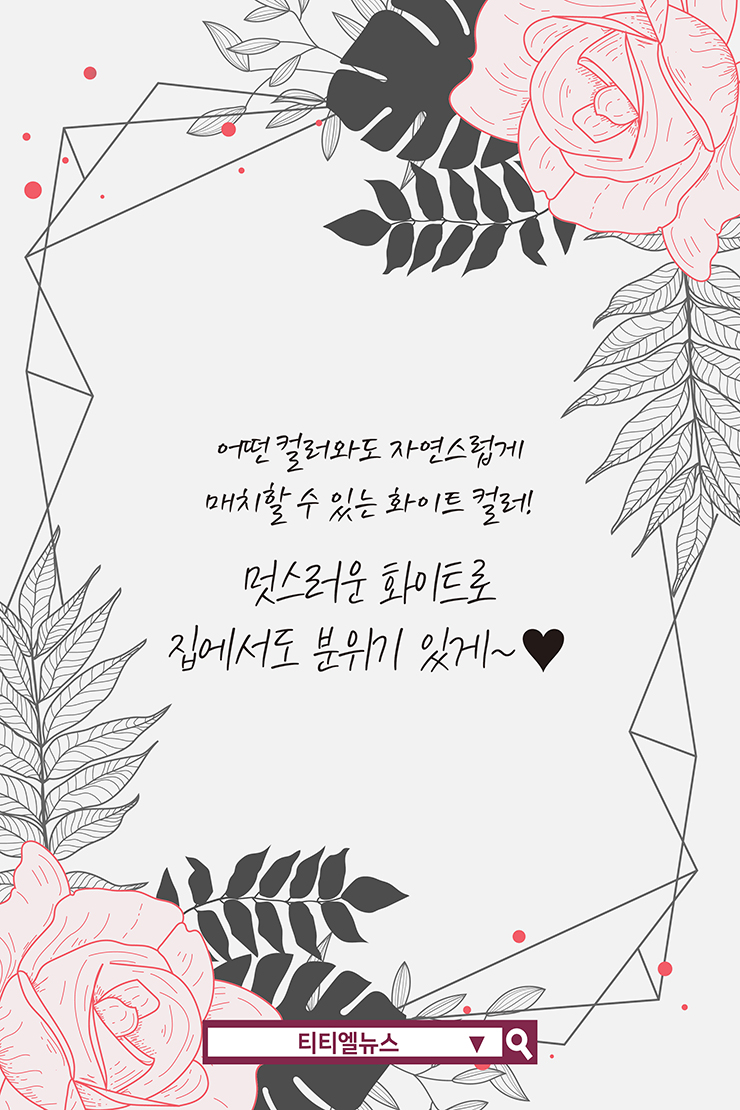 어떤 컬러와도 자연스럽게
매치할 수 있는 화이트 컬러!
멋스러운 화이트로
집에서도 분위기 있게~♥
티티엘뉴스 ▼